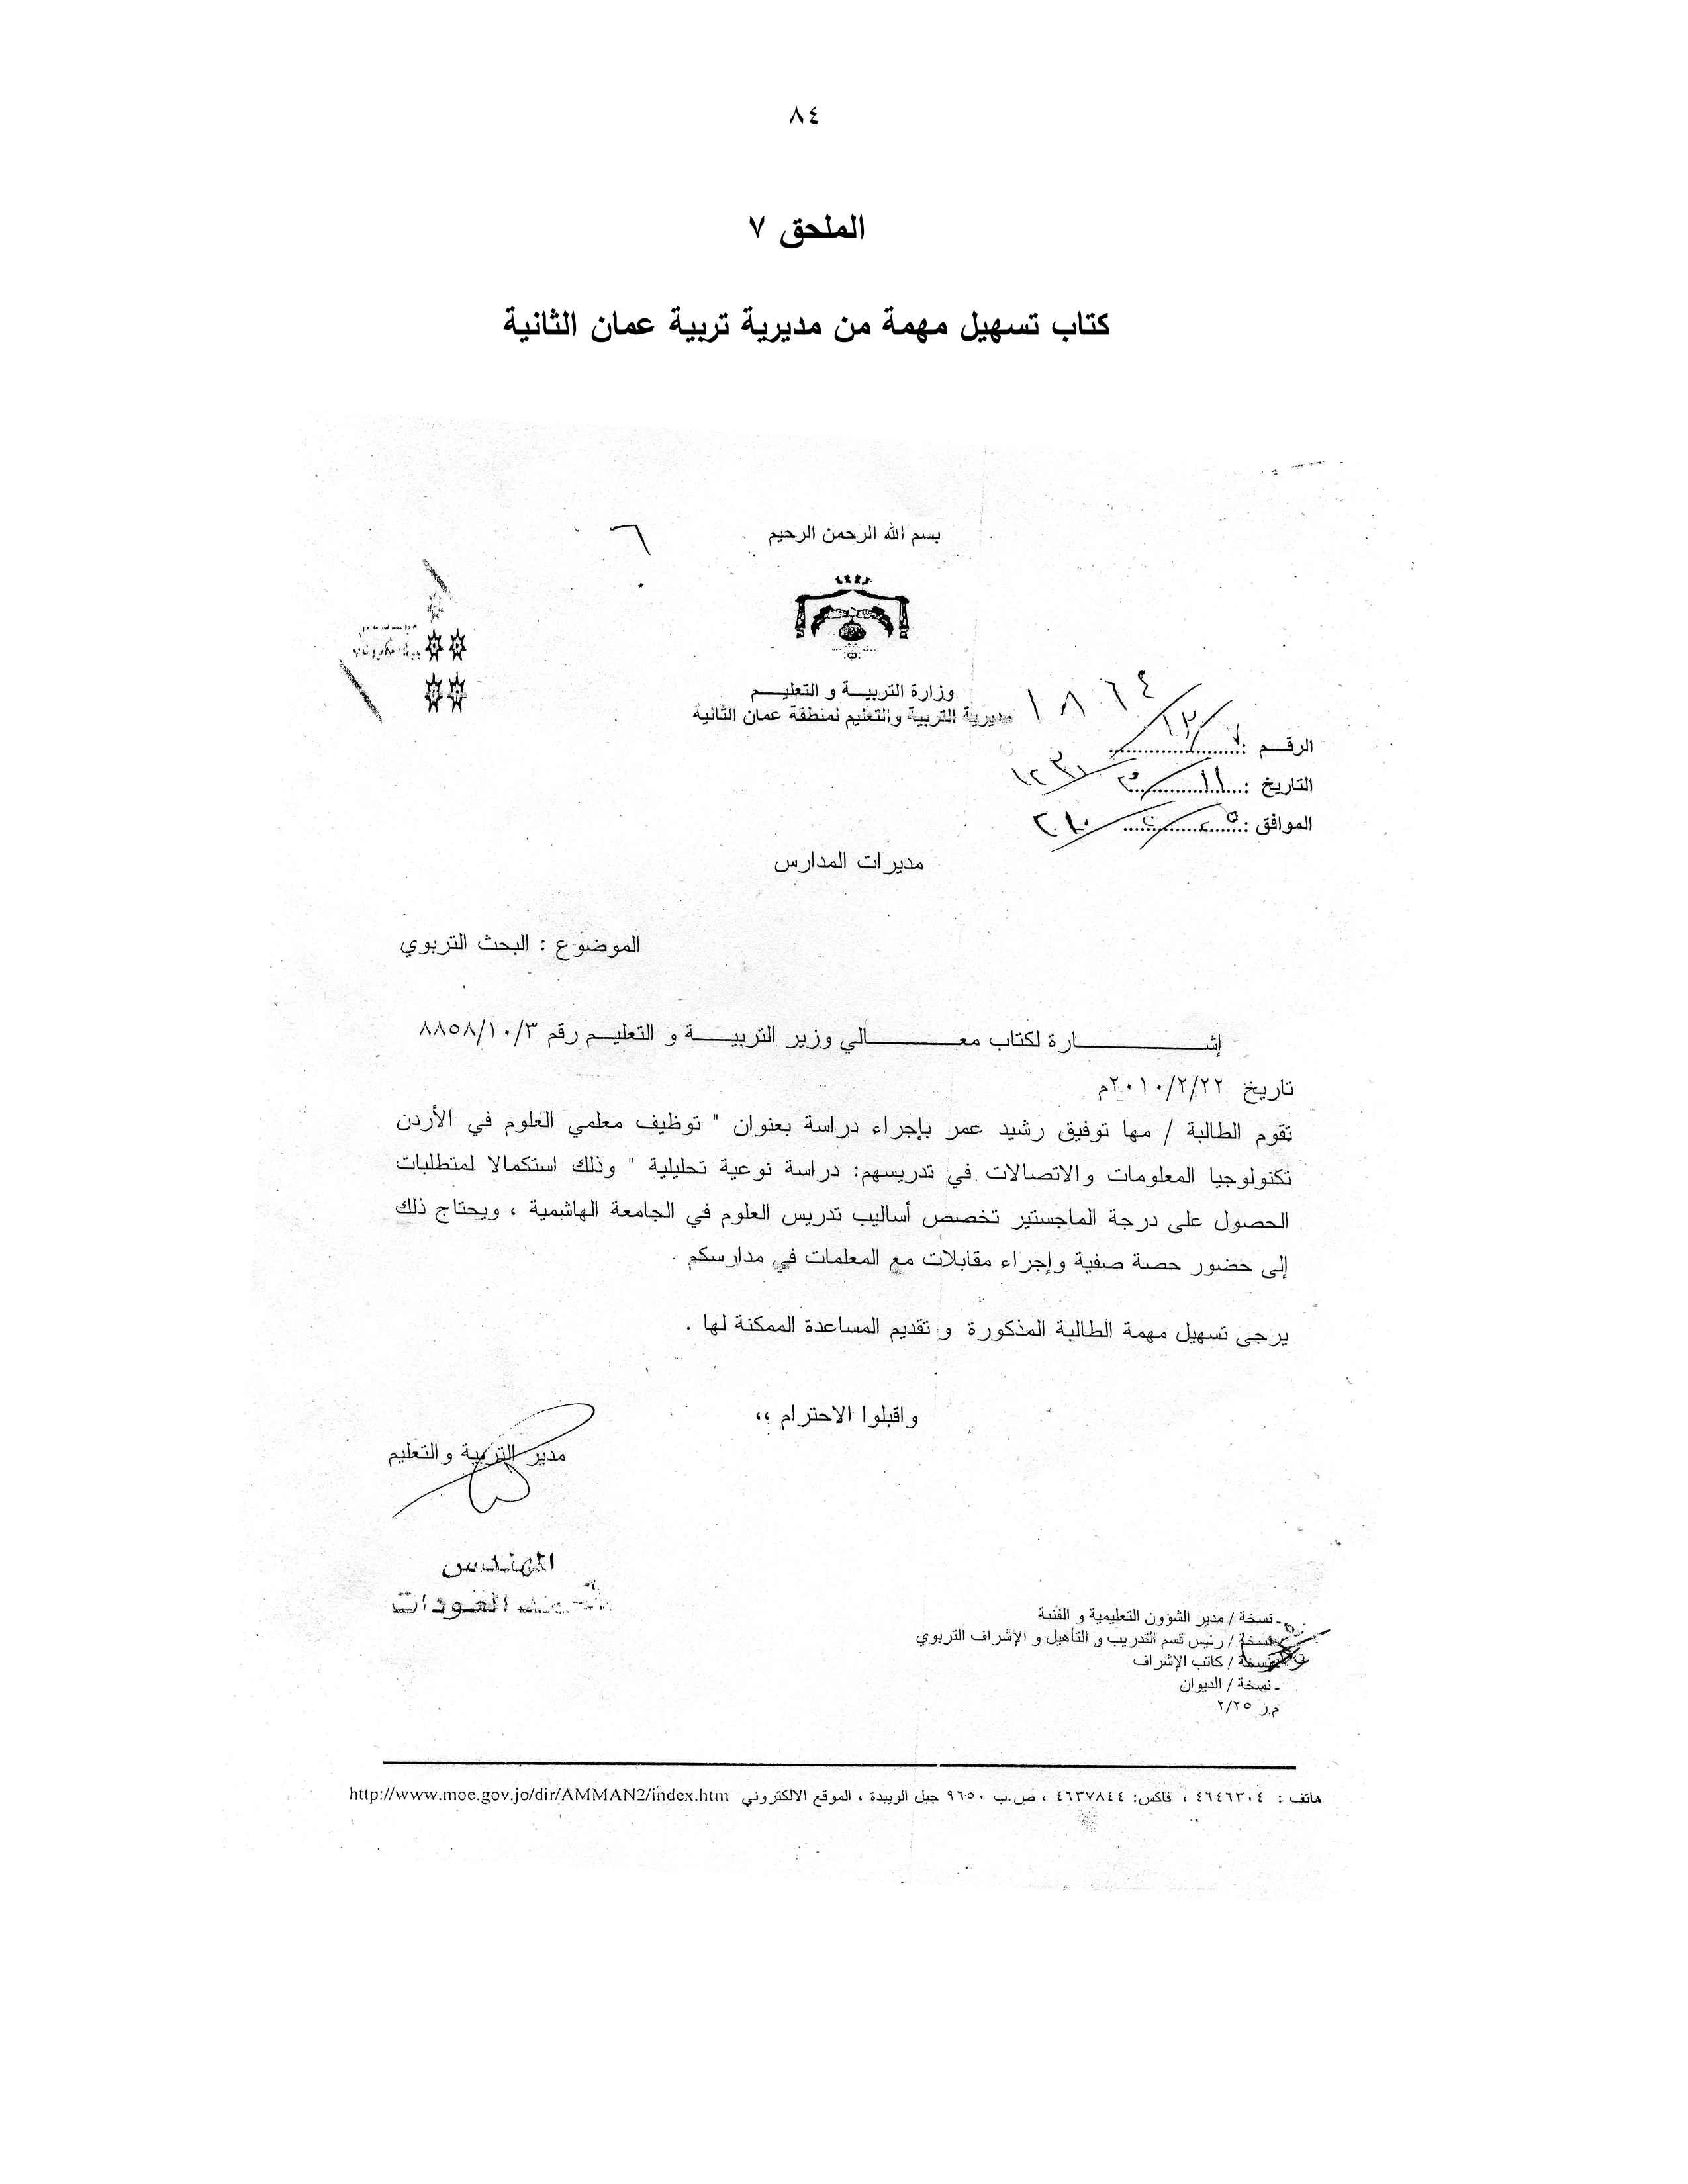 ٨٤
الملحق ٧
كتاب تسهيل مهمة من مديرية تربية عمان الثانية
بسم الله الرحمن الرحيم
٦
وزارة التربيـــة و التعليـــم
مديرية التربية والتعليم لمنطقة عمان الثانية
الرقـم :
التاريخ :
الموافق :
مديرات المدارس
الموضوع : البحث التربوي
إشــــــــارة لكتاب معـــــــــالي وزير التربيـــــة و التعليــم رقم ٨٨٥٨/١٠/٣
تاريخ ٢٠١٠/٢/٢٢م
تقوم الطالبة / مها توفيق رشيد عمر بإجراء دراسة بعنوان " توظيف معلمي العلوم في الأردن
تكنولوجيا المعلومات والاتصالات في تدريسهم: دراسة نوعية تحليلية " وذلك استكمالا لمتطلبات
الحصول على درجة الماجستير تخصص أساليب تدريس العلوم في الجامعة الهاشمية ، ويحتاج ذلك
إلى حضور حصة صفية وإجراء مقابلات مع المعلمات في مدارسكم .
يرجى تسهيل مهمة الطالبة المذكورة و تقديم المساعدة الممكنة لها .
واقبلوا الاحترام ،،
مدير التربية والتعليم
المهندس
العودات
- نسخة / مدير الشؤون التعليمية و الفنية
نسخة / رئيس قسم التدريب و التأهيل و الإشراف التربوي
نسخة / كاتب الإشراف
- نسخة / الديوان
م.ر ٢/٢٥
هاتف : ٤٦٤٦٣٠٤ ، فاكس: ٤٦٣٧٨٤٤ ، ص.ب ٩٦٥٠ جبل الويبدة ، الموقع الالكتروني http://www.moe.gov.jo/dir/AMMAN2/index.htm